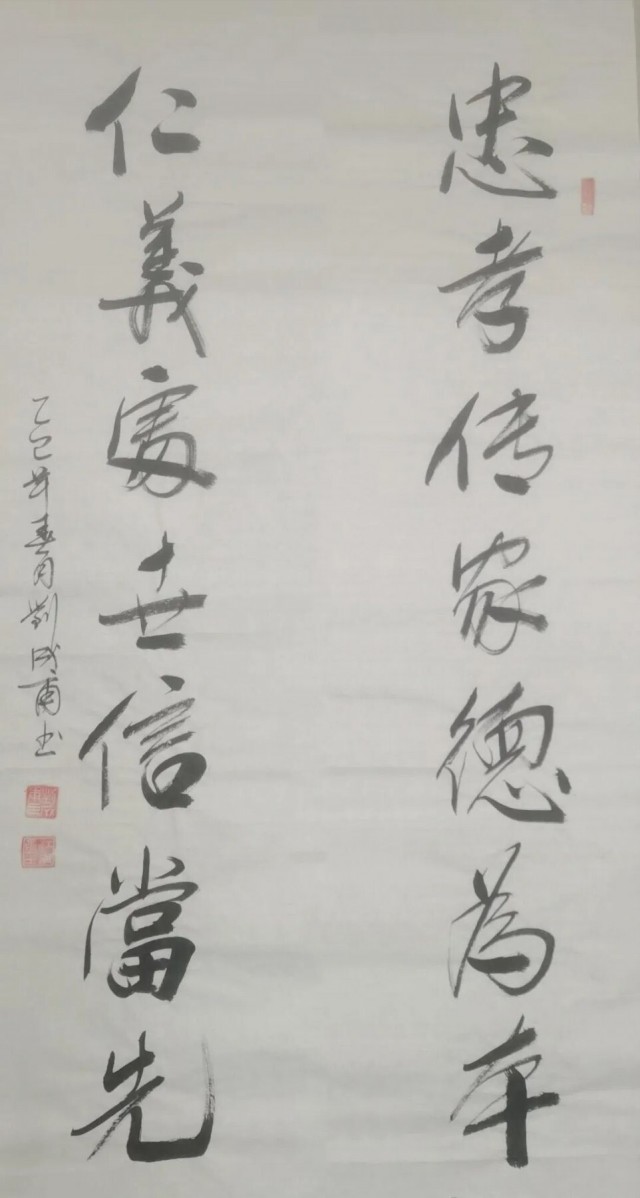 忠孝传家德為本
仁義處世信當先
乙巳年春月刘成甫书